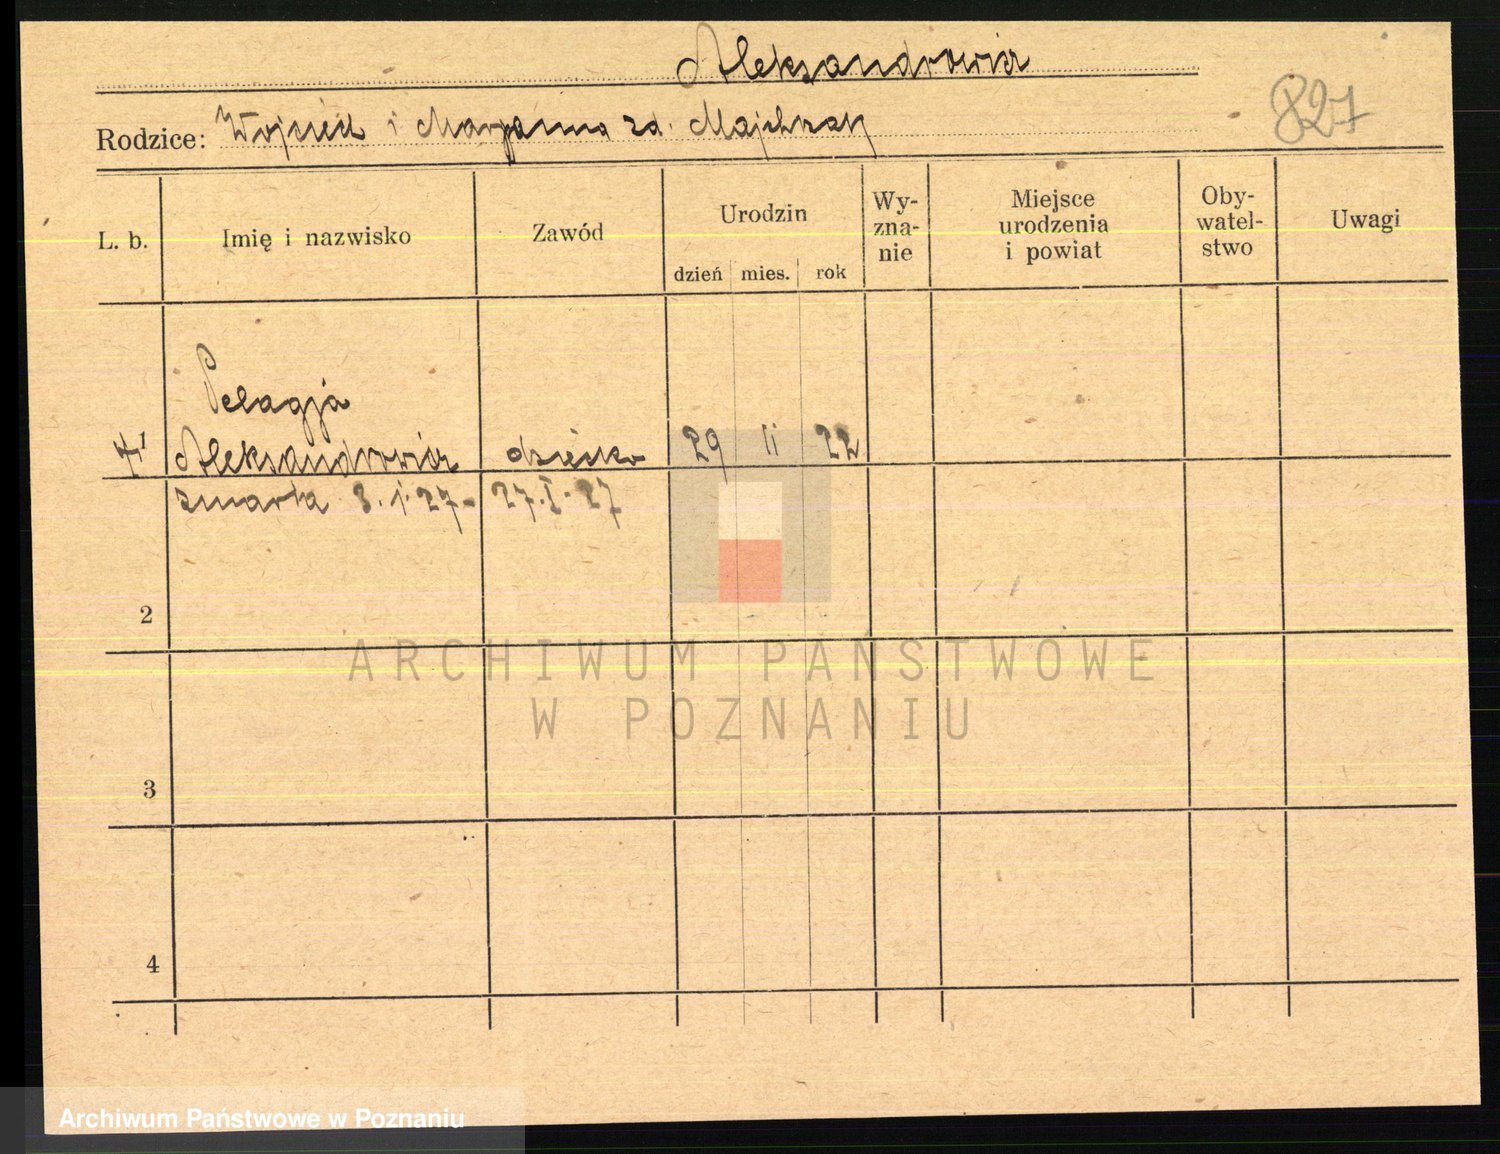 Aleksandrowicz
Rodzice: Wojciech i Marjanna zd. Majchrzak
827
L. b.
Imię i nazwisko
Zawód
Urodzin
dzień mies. rok
Wy-
zna-
nie
Miejsce
urodzenia
i powiat
Oby-
watel-
stwo
Uwagi
1
Pelagja
Aleksandrowicz dziecko 29 11 22
zmarła 3.1.27 - 27.I.27
2
3
4
ARCHIWUM PAŃSTWOWE
W POZNANIU
Archiwum Państwowe w Poznaniu